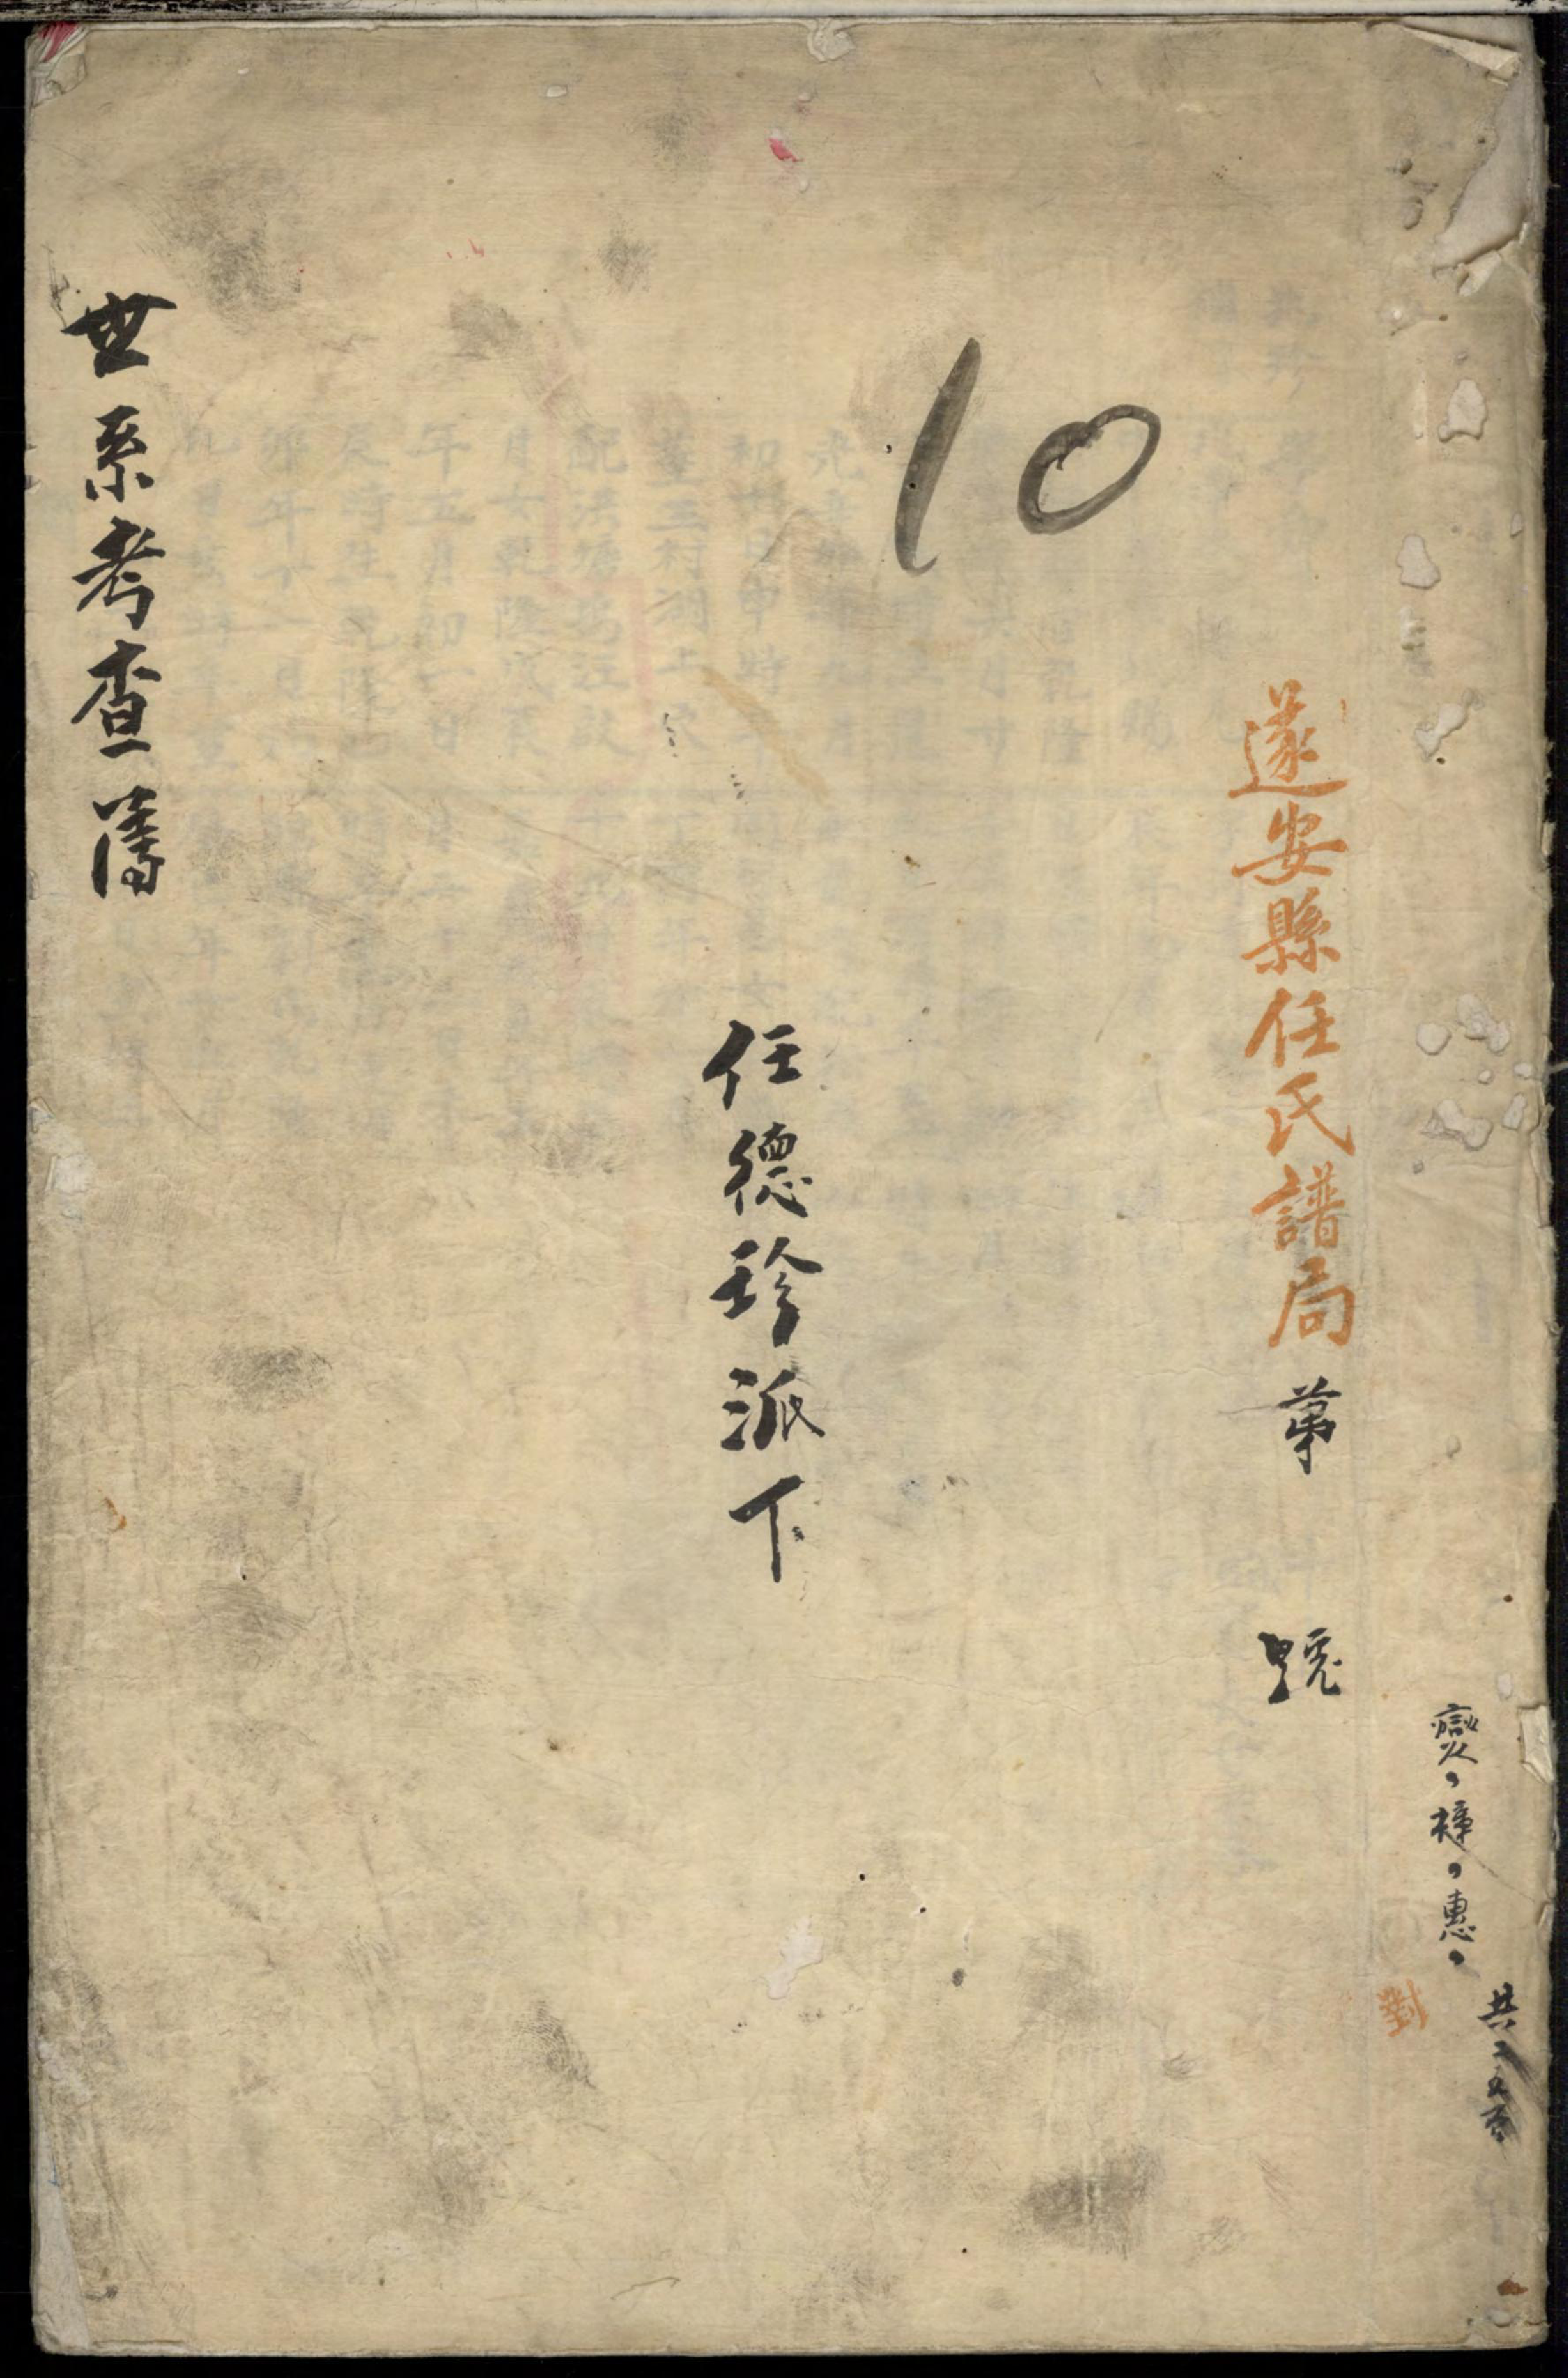 共
燮、樟、惠、
對
遂安縣任氏譜局 第 號
10
任德珍派下
世系考查簿